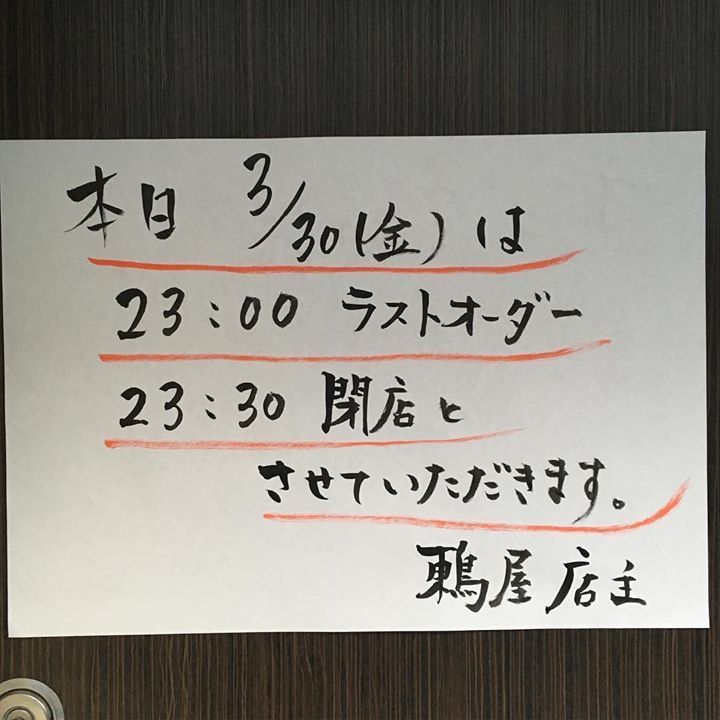 本日 3/30(金)は
23:00 ラストオーダー
23:30 閉店と
させていただきます。
屋 店主